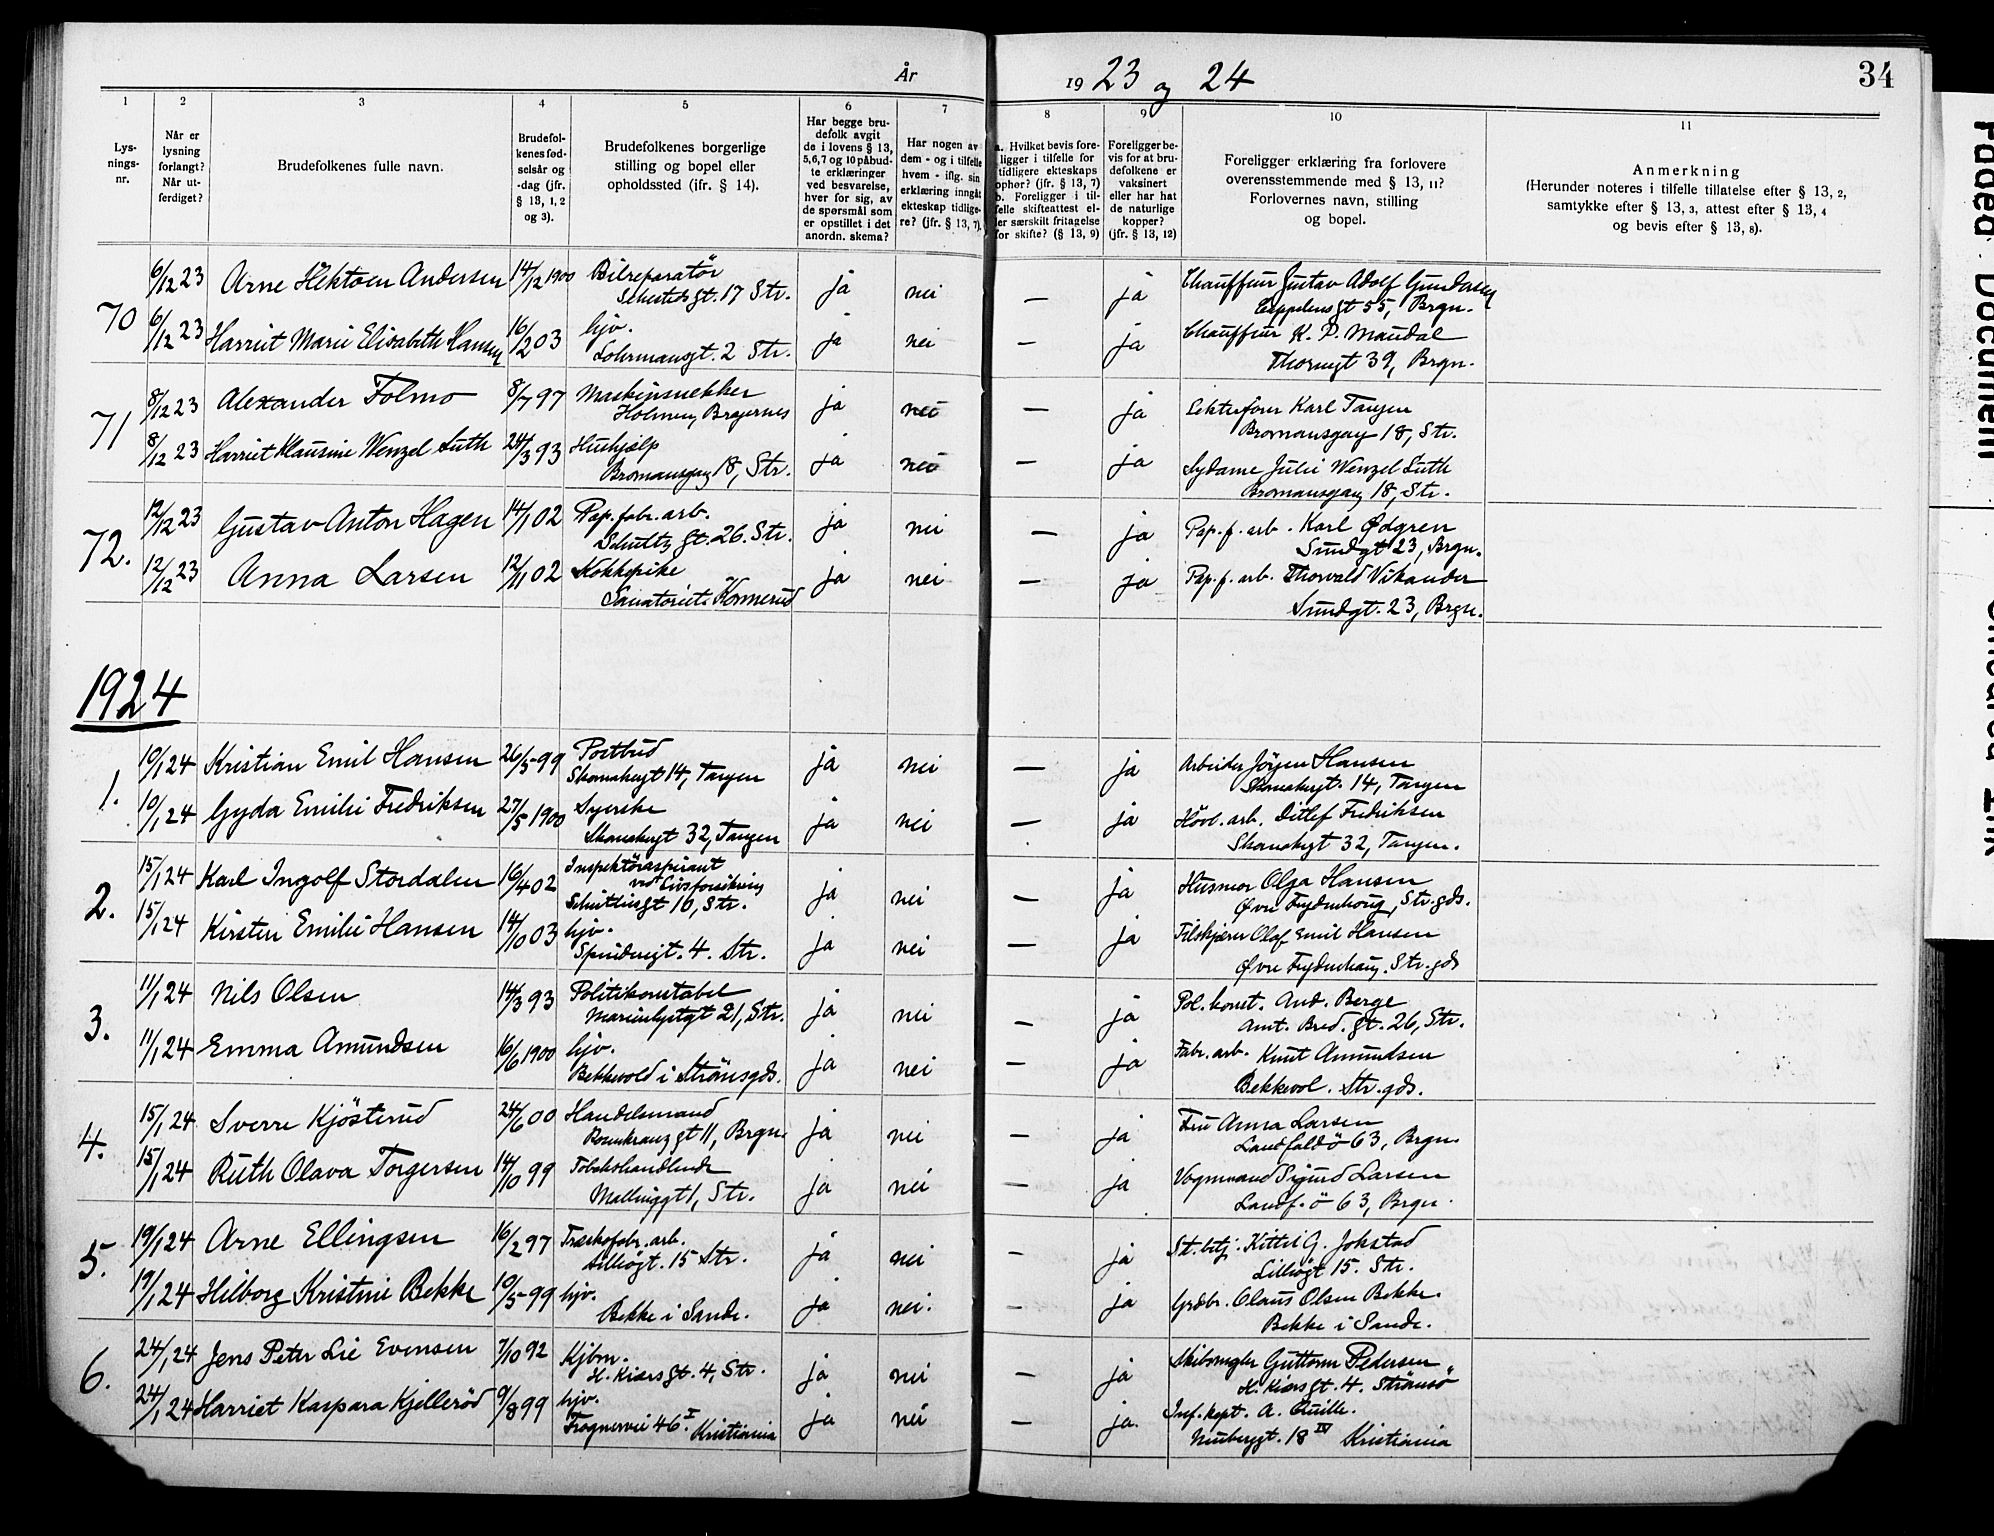 År 19 23 og 24
34
1 2 3 4 5 6 7 8 9 10 11
Lys-
nings-
nr.
Når er
lysning
forlangt?
Når ut-
ferdiget?
Brudefolkenes fulle navn.
Brudefol-
kenes fød-
selsår og
-dag (jfr.
§ 13, 1, 2
og 3).
Brudefolkenes borgerlige
stilling og bopel eller
opholdssted (ifr. § 14).
Har begge bru-
defolk avgit
de i lovens § 13,
5,6,7 og 10 påbud-
te erklæringer
ved besvarelse,
hver for sig, av
de spørsmål som
er opstillet i det
anordn. skema?
Har nogen av
dem - og i tilfelle
hvem - iflg. sin
erklæring inngåt
ekteskap tidlige-
re? (jfr. § 13, 7).
a. Hvilket bevis fore-
ligger i tilfelle for
tidligere ekteskaps
ophør? (jfr. § 13, 7)
b. Foreligger i til-
felle skifteattest el-
ler særskilt fritagelse
for skifte? (§ 13, 9)
Foreligger be-
vis for at bru-
defolkene er
vaksinert
eller har hat
de naturlige
kopper?
(jfr. § 13, 12)
Foreligger erklæring fra forlovere
overensstemmende med § 13, 11?
Forlovernes navn, stilling
og bopel.
Anmerkning
(Herunder noteres i tilfelle tillatelse efter § 13, 2,
samtykke efter § 13, 3, attest efter § 13, 4
og bevis efter § 13, 8).
70
6/12 23 Arne Hektoen Andersen 14/12 1900 Bilreparatør ja nei — ja Chauffeur Gustav Adolf Gundersen
Schestedsgt. 17 Str. Cappelensgt 55, Brgn.
6/12 23 Harriet Marie Elisabeth Hansen 16/2 03 hjv. ja nei — ja Chauffeur K. P. Maudal
Lohrmansgt. 2 Str. Thornegt 39, Brgn.
71
8/12 23 Alexander Folmo 8/7 97 Maskinsnekker ja nei — ja Karl Tangen
Holmen, Bragernes Bromansgang 18, Str.
8/12 23 Harriet Klausine Wenzel Luth 24/3 93 Hushjelp ja nei — ja Sydame Julie Wenzel Luth
Bromansgang 18, Str. Bromansgang 18, Str.
72.
12/12 23 Gustav Anton Hagen 14/1 02 Pap. fabr. arb. ja nei — ja Pap. f. arb. Karl Ødgren
Schultz gt. 26. Str. Sundgt 23, Brgn.
12/12 23 Anna Larsen 12/11 02 Kokkepike ja nei — ja Pap. f. arb. Thorvald Vikander
Sanatoriet. Konnerud Sundgt. 23, Brgn.
1924
1.
10/1 24 Kristian Emil Hansen 26/5 99 Postbud ja nei — ja Arbeider Jörgen Hansen
Skomakergt 14, Tangen Skomakergt. 14, Tangen
10/1 24 Gyda Emilie Fredriksen 27/5 1900 Syerske ja nei — ja Hövl. arb. Ditlef Fredriksen
Skomakergt 32, Tangen Skomakergt 32, Tangen.
2.
15/1 24 Karl Ingolf Stordalen 16/4 02 Inspektöraspirant ja nei — ja Husmor Olga Hansen
ved Livsforsikring
gt 16, Str. Øvre Frydenhaug, Str. gds.
15/1 24 Kirsten Emilie Hansen 14/10 03 hjv. ja nei — ja Tilskjærer Olaf Emil Hansen
gt. 4. Str. Øvre Frydenhaug. Str. gds
3.
11/1 24 Nils Olsen 14/3 93 Politikonstabel ja nei — ja Pol. konst. And. Berge
Marienlystgt 21, Str. Amt. Bred. gt. 26, Str.
11/1 24 Emma Amundsen 16/6 1900 hjv. ja nei — ja Fabr. arb. Knut Amundsen
Bekkevold i Strömsgds. Bekkevol. Str. gds.
4.
15/1 24 Sverre Kjösterud 24/6 00 Handelsmand ja nei — ja Fru Anna Larsen
Rosenkranzgt 11, Brgn. Landfaldö 63, Brgn.
15/1 24 Ruth Olava Torgersen 14/10 99 Tobakshandlende ja nei — ja Vognmand Sigurd Larsen
Mallinggt 1, Str. Landf. ö 63, Brgn.
5.
19/1 24 Arne Ellingsen 16/2 97 Træskofabr. arb. ja nei — ja St. betj. Kittil G. Jokstad
Lilliögt. 15 Str. Lilliögt 15. Str.
19/1 24 Hilborg Kristine Bekke 10/5 99 hjv. ja nei. — ja Grdbr. Olaus Olsen Bekke.
Bekke i Sande. Bekke i Sande.
6.
24/1 24 Jens Peter Lie Evensen 7/10 92 Kjbm. ja nei — ja Skibsmegler Guttorm Pedersen
H. Kiærs gt. 4, Str. H. Kiærs gt. 4. Strömsö
24/1 24 Harriet Kaspara Kjellerød 9/8 99 hjv. ja nei — ja. Inf. kapt. A. Quille.
Frognervei 46 I Kristiania Niubergt. 18 IV Kristiania